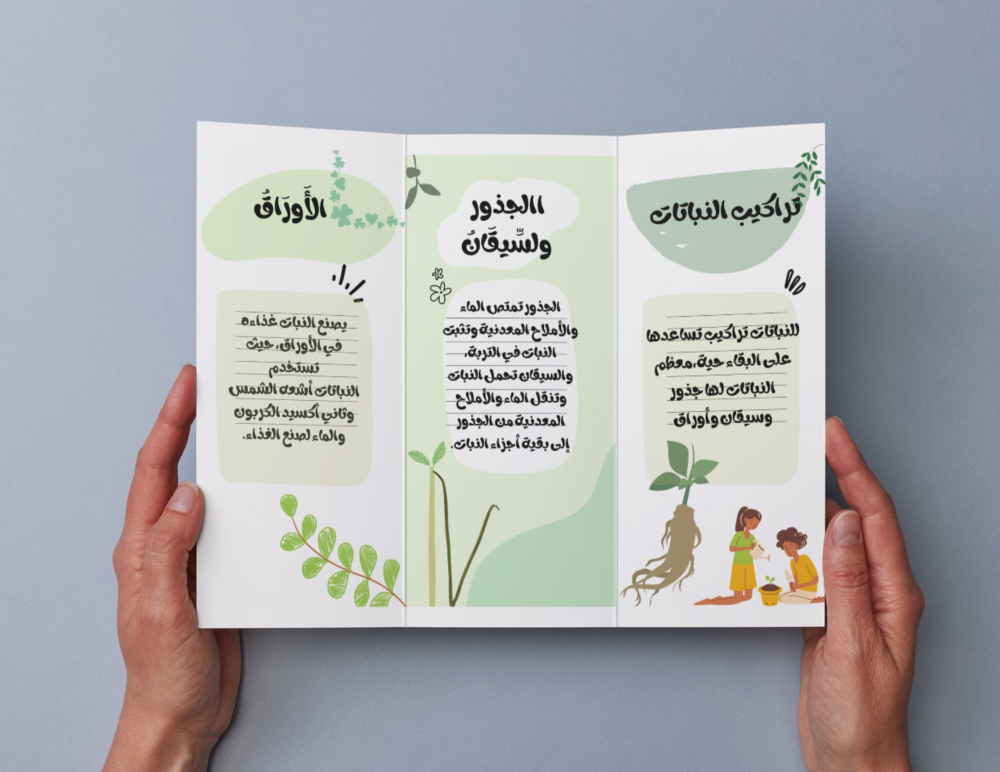 تراكيب النباتات
للنباتات تراكيب تساعدها
على البقاء حية،معظم
النباتات لها جذور
وسيقان وأوراق
االجذور
ولسِّيقَانُ
الجذور تمتص الماء
والأملاح المعدنية وتثبت
النبات في التربة،
والسيقان تحمل النبات
وتنقل الماء والأملاح
المعدنية من الجذور
إلى بقية أجزاء النبات.
الأَورَاقُ
يصنع النبات غذاءه
في الأوراق، حيث
تستخدم
النباتات أشعه الشمس
وثاني أكسيد الكربون
والماء لصنع الغذاء.